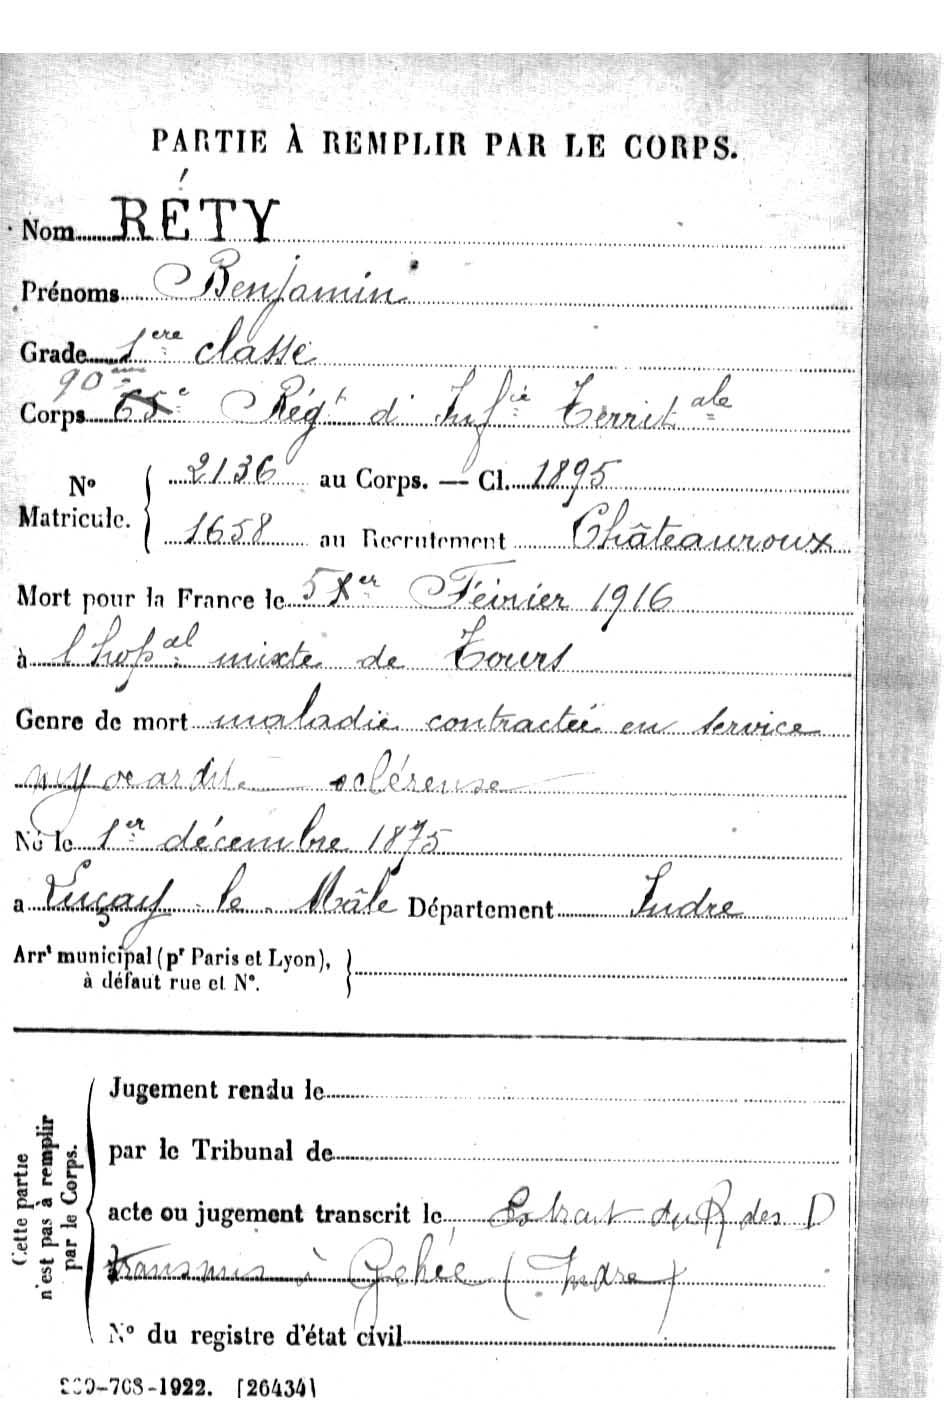 PARTIE À REMPLIR PAR LE CORPS.
Nom RÉTY
Prénoms Benjamin
Grade 1ere classe
90ème
Corps 65e Régt d'Infie Territale
No Matricule. 2136 au Corps. — Cl. 1895
1658 au Recrutement Châteauroux
Mort pour la France le 5 1er Février 1916
à l'hopal mixte de Tours
Genre de mort maladie contractée en service
myocardite scléreuse
Né le 1er décembre 1875
a Luçay-le-Mâle Département Indre
Arrt municipal (pr Paris et Lyon),
à défaut rue et No.
Cette partie n'est pas à remplir par le Corps.
Jugement rendu le
par le Tribunal de
acte ou jugement transcrit le Extrait du R des D
transmis à Gehée (Indre)
No du registre d'état civil
-708-1922. [26434]